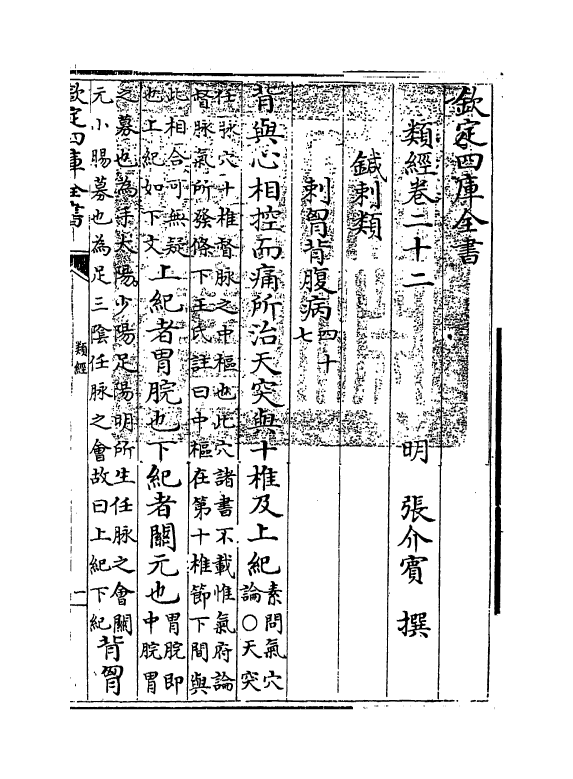 欽定四庫全書
類經卷二十二 明 張介賓 撰
鍼刺類
刺胷背腹病四十七
背與心相控而痛所治天突與十椎及上紀素問氣穴論○天突
任脉穴十椎督脉之中樞也此穴諸書不載惟氣府論督脉氣所發條下王氏註曰中樞在第十椎節下間與
此相合可無疑也上紀如下文上紀者胃脘也下紀者關元也胃脘即中脘胃
之募也為手太陽少陽足陽明所生任脉之會關元小腸募也為足三陰任脉之會故曰上紀下紀背胷
欽定四庫全書 類經 一